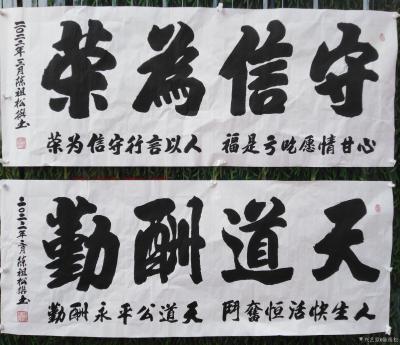 守信為荣
心甘情愿吃亏是福 人以言行守信为荣
二〇二二年三月陈祖松撰书
天道酬勤
人生快活恒奮鬥 天道公平永酬勤
二〇二二年三月陈祖松撰书